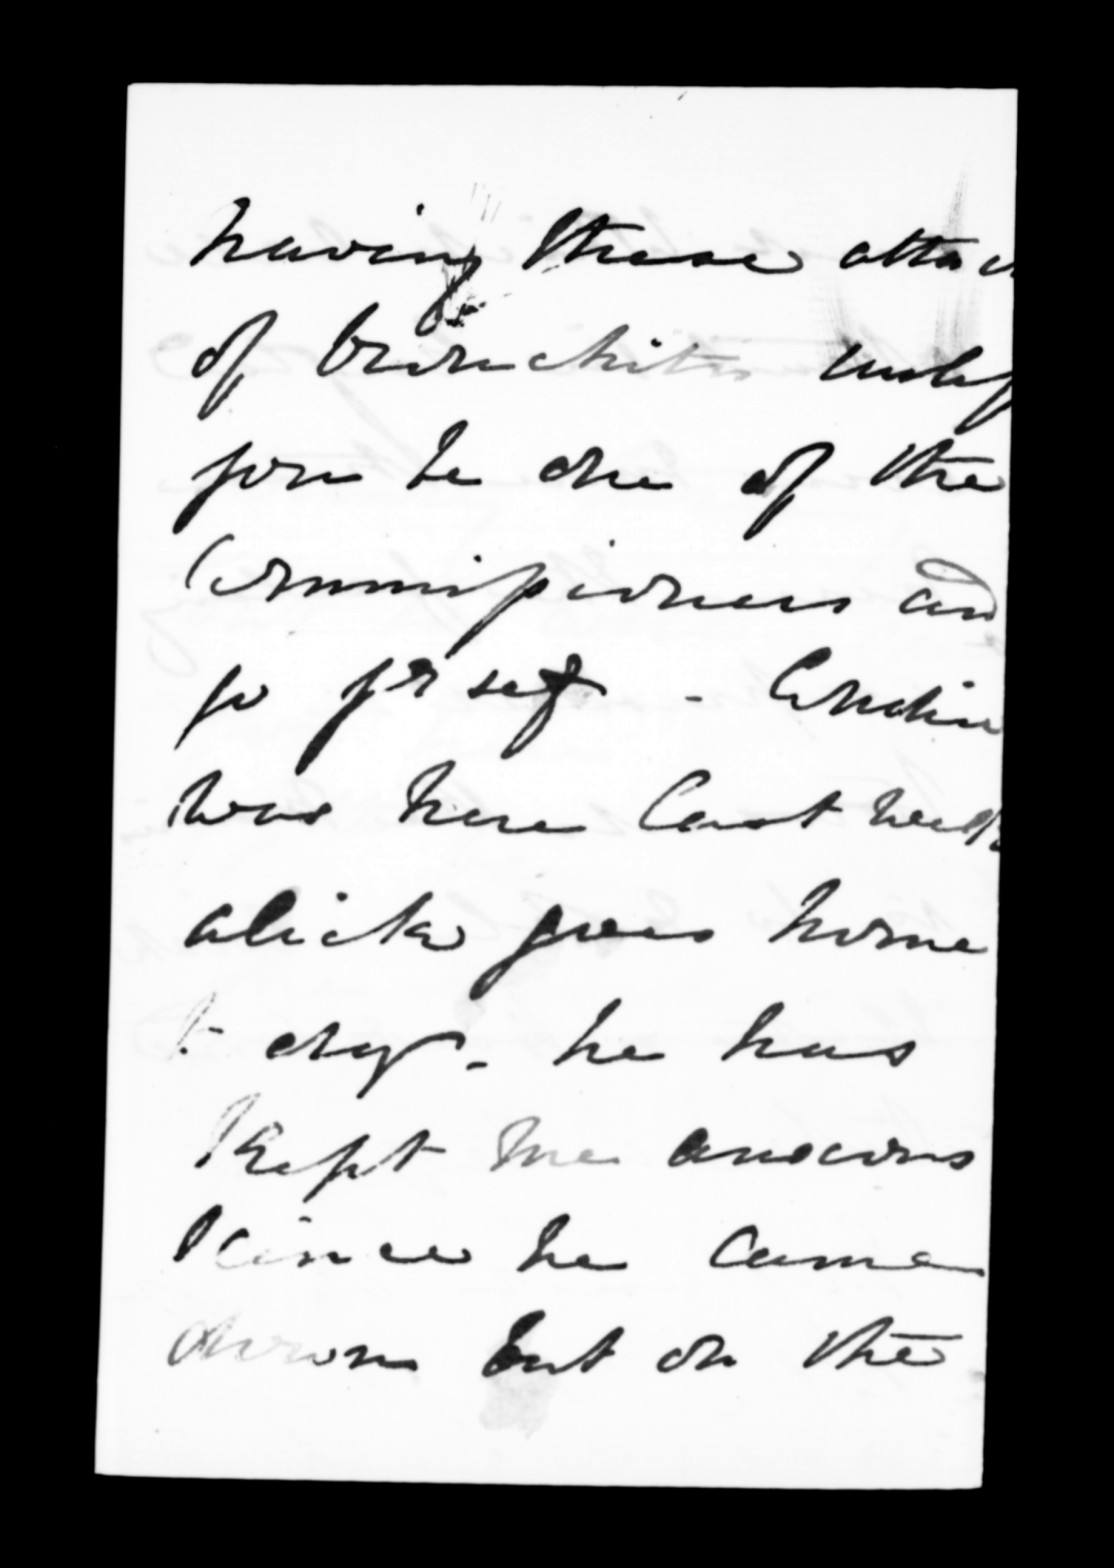 having these attac
of bronchitis
you be one of the
Commissioners and
go yrself -
was here last week
Alick goes home
to day - he has
kept me anxious
since he came
down but on the